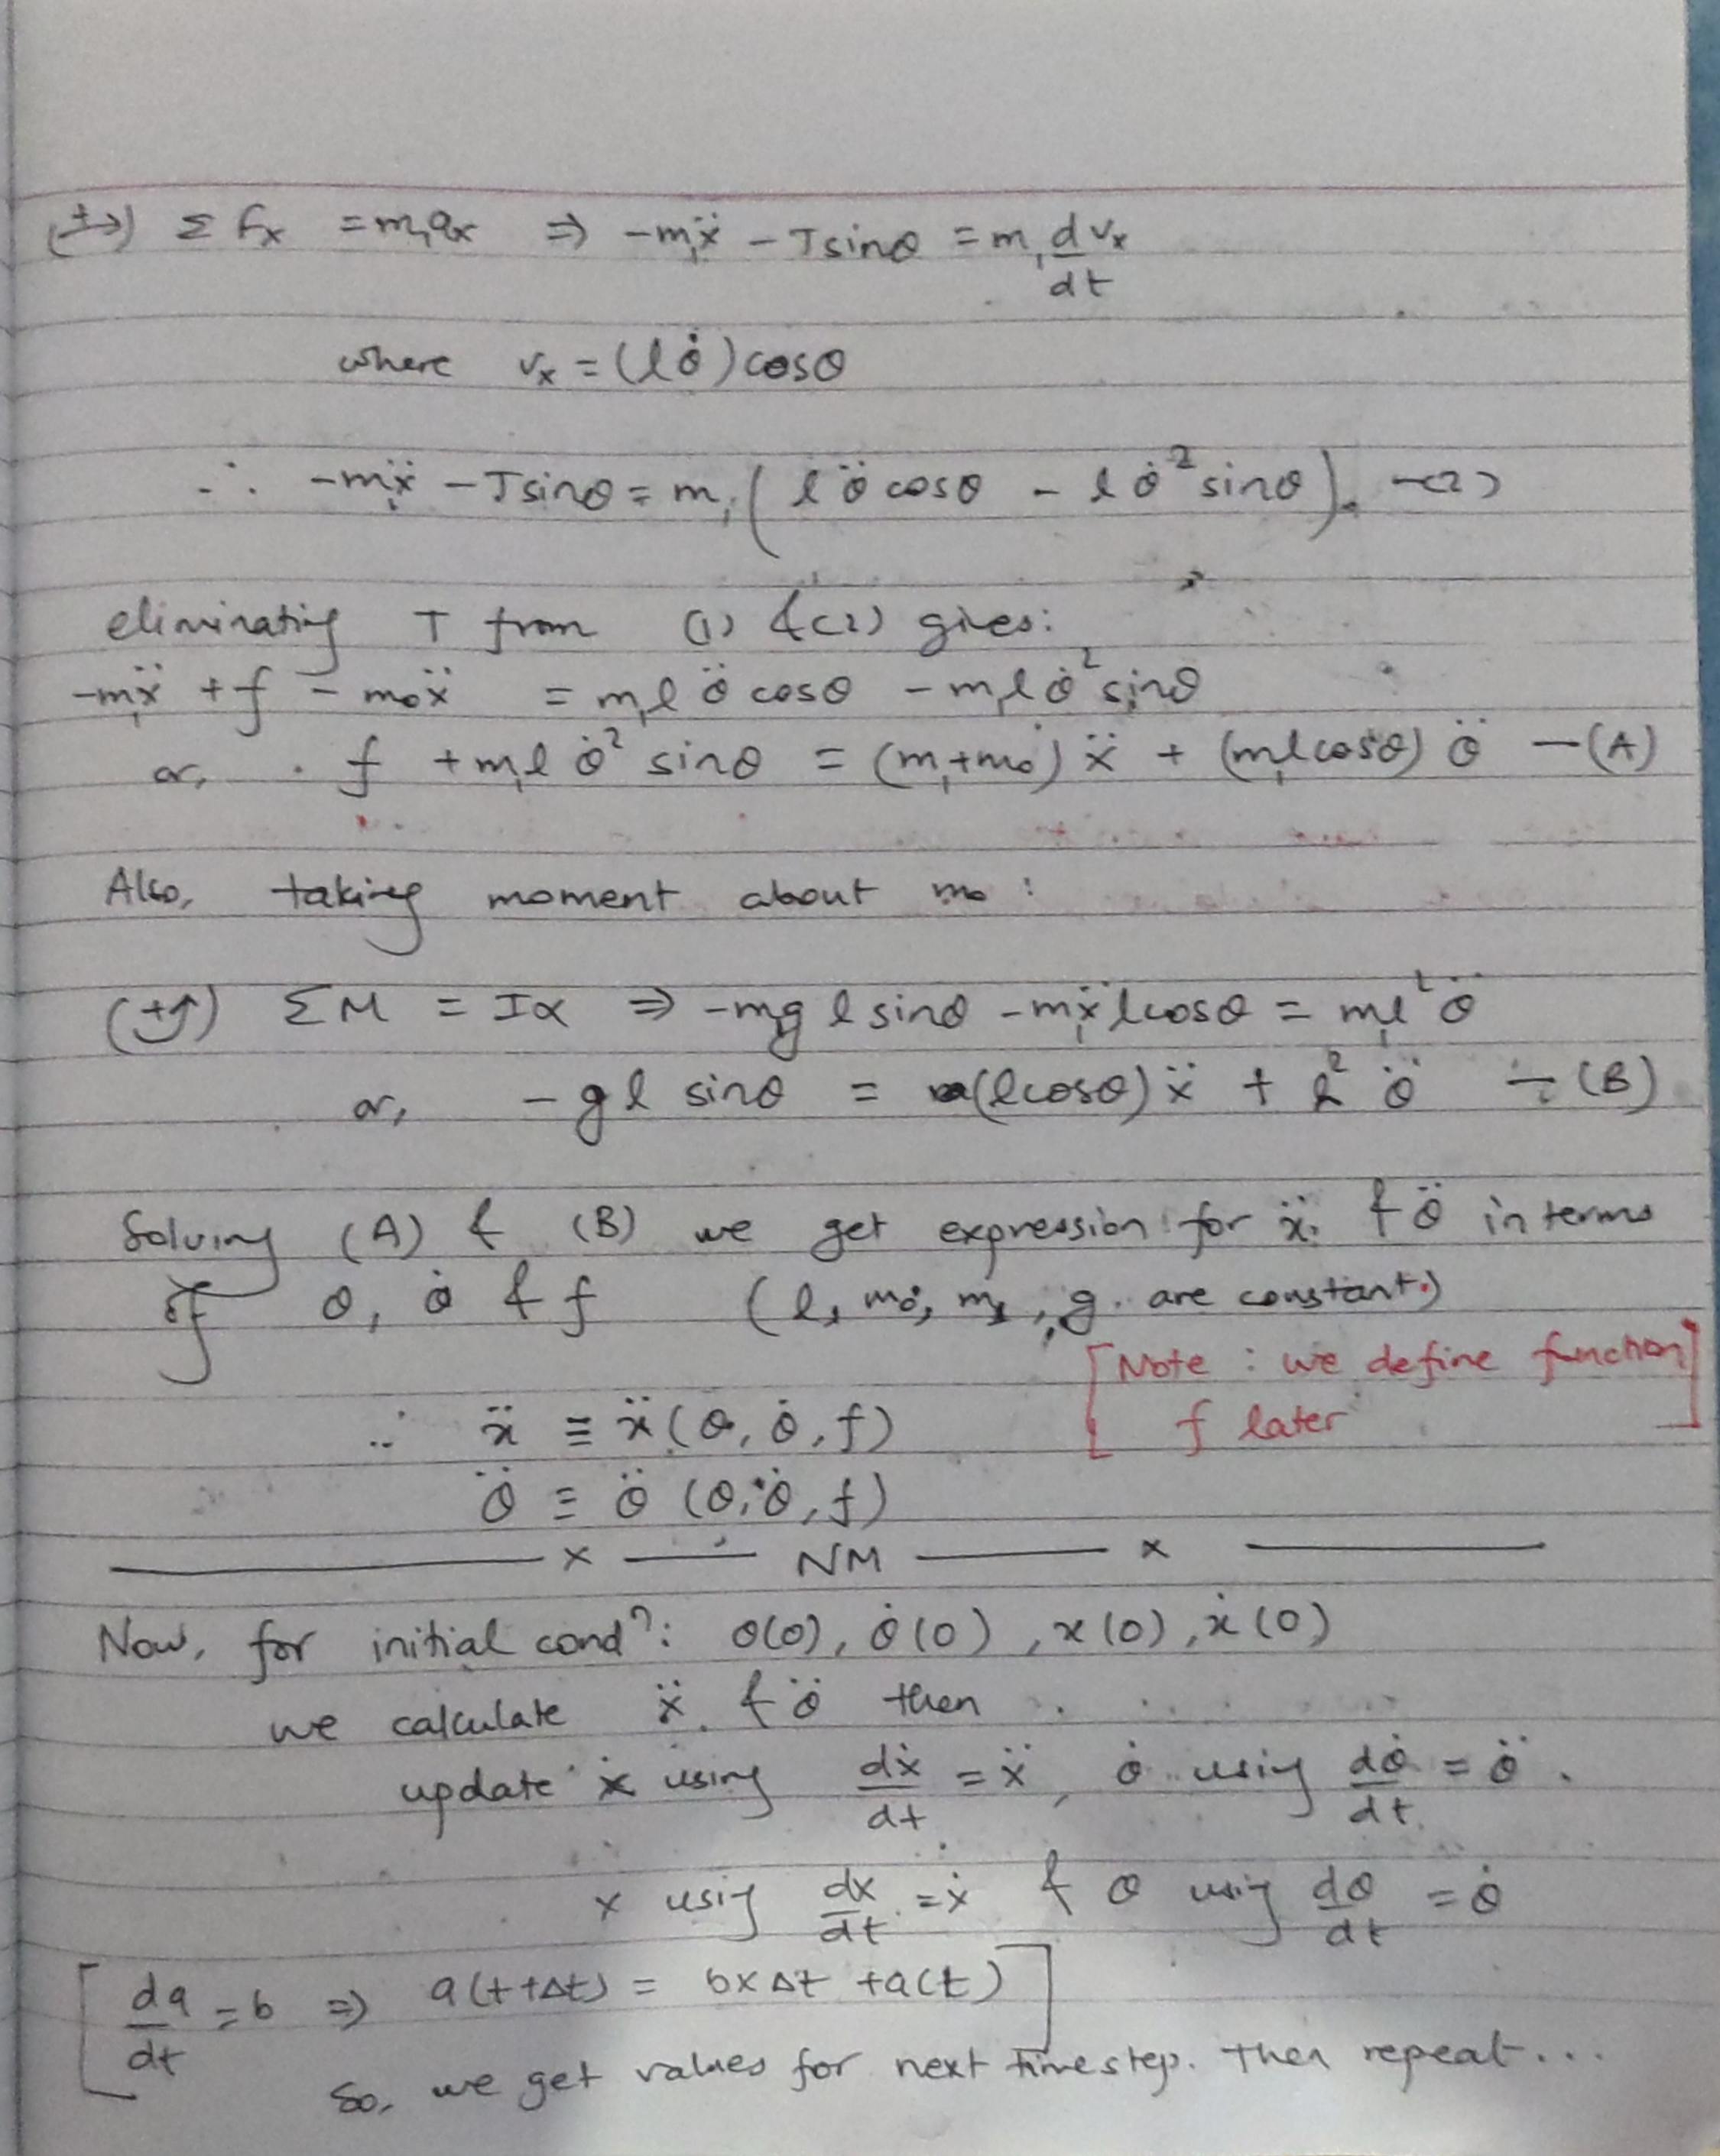 (+→) Σ Fx = m₁ax ⇒ -m₁ẍ - Tsinθ = m₁ dvx/dt
where vx = (lθ̇)cosθ
∴ -m₁ẍ - Tsinθ = m₁(lθ̈cosθ - lθ̇²sinθ). -(2)
eliminating T from (1) & (2) gives:
-m₁ẍ + f - m₀ẍ = m₁lθ̈cosθ - m₁lθ̇²sinθ
or, f + m₁lθ̇²sinθ = (m₁+m₀)ẍ + (m₁lcosθ)θ̈ -(A)
Also, taking moment about m₀ :
(+↺) ΣM = Iα ⇒ -m₁glsinθ - m₁ẍlcosθ = m₁l²θ̈
or, -gl sinθ = (lcosθ)ẍ + l²θ̈ -(B)
Solving (A) & (B) we get expression for ẍ & θ̈ in terms
of θ, θ̇ & f (l, m₀, m₁, g are constant.)
[Note : we define function
f later]
∴ ẍ ≡ ẍ(θ, θ̇, f)
θ̈ ≡ θ̈(θ, θ̇, f)
——— x —— NM —— x ———
Now, for initial condⁿ: θ(0), θ̇(0), x(0), ẋ(0)
we calculate ẍ & θ̈ then
update ẋ using dẋ/dt = ẍ, θ̇ using dθ̇/dt = θ̈.
x using dx/dt = ẋ & θ using dθ/dt = θ̇
[da/dt = b ⇒ a(t+Δt) = b×Δt + a(t)]
So, we get values for next timestep. Then repeat...